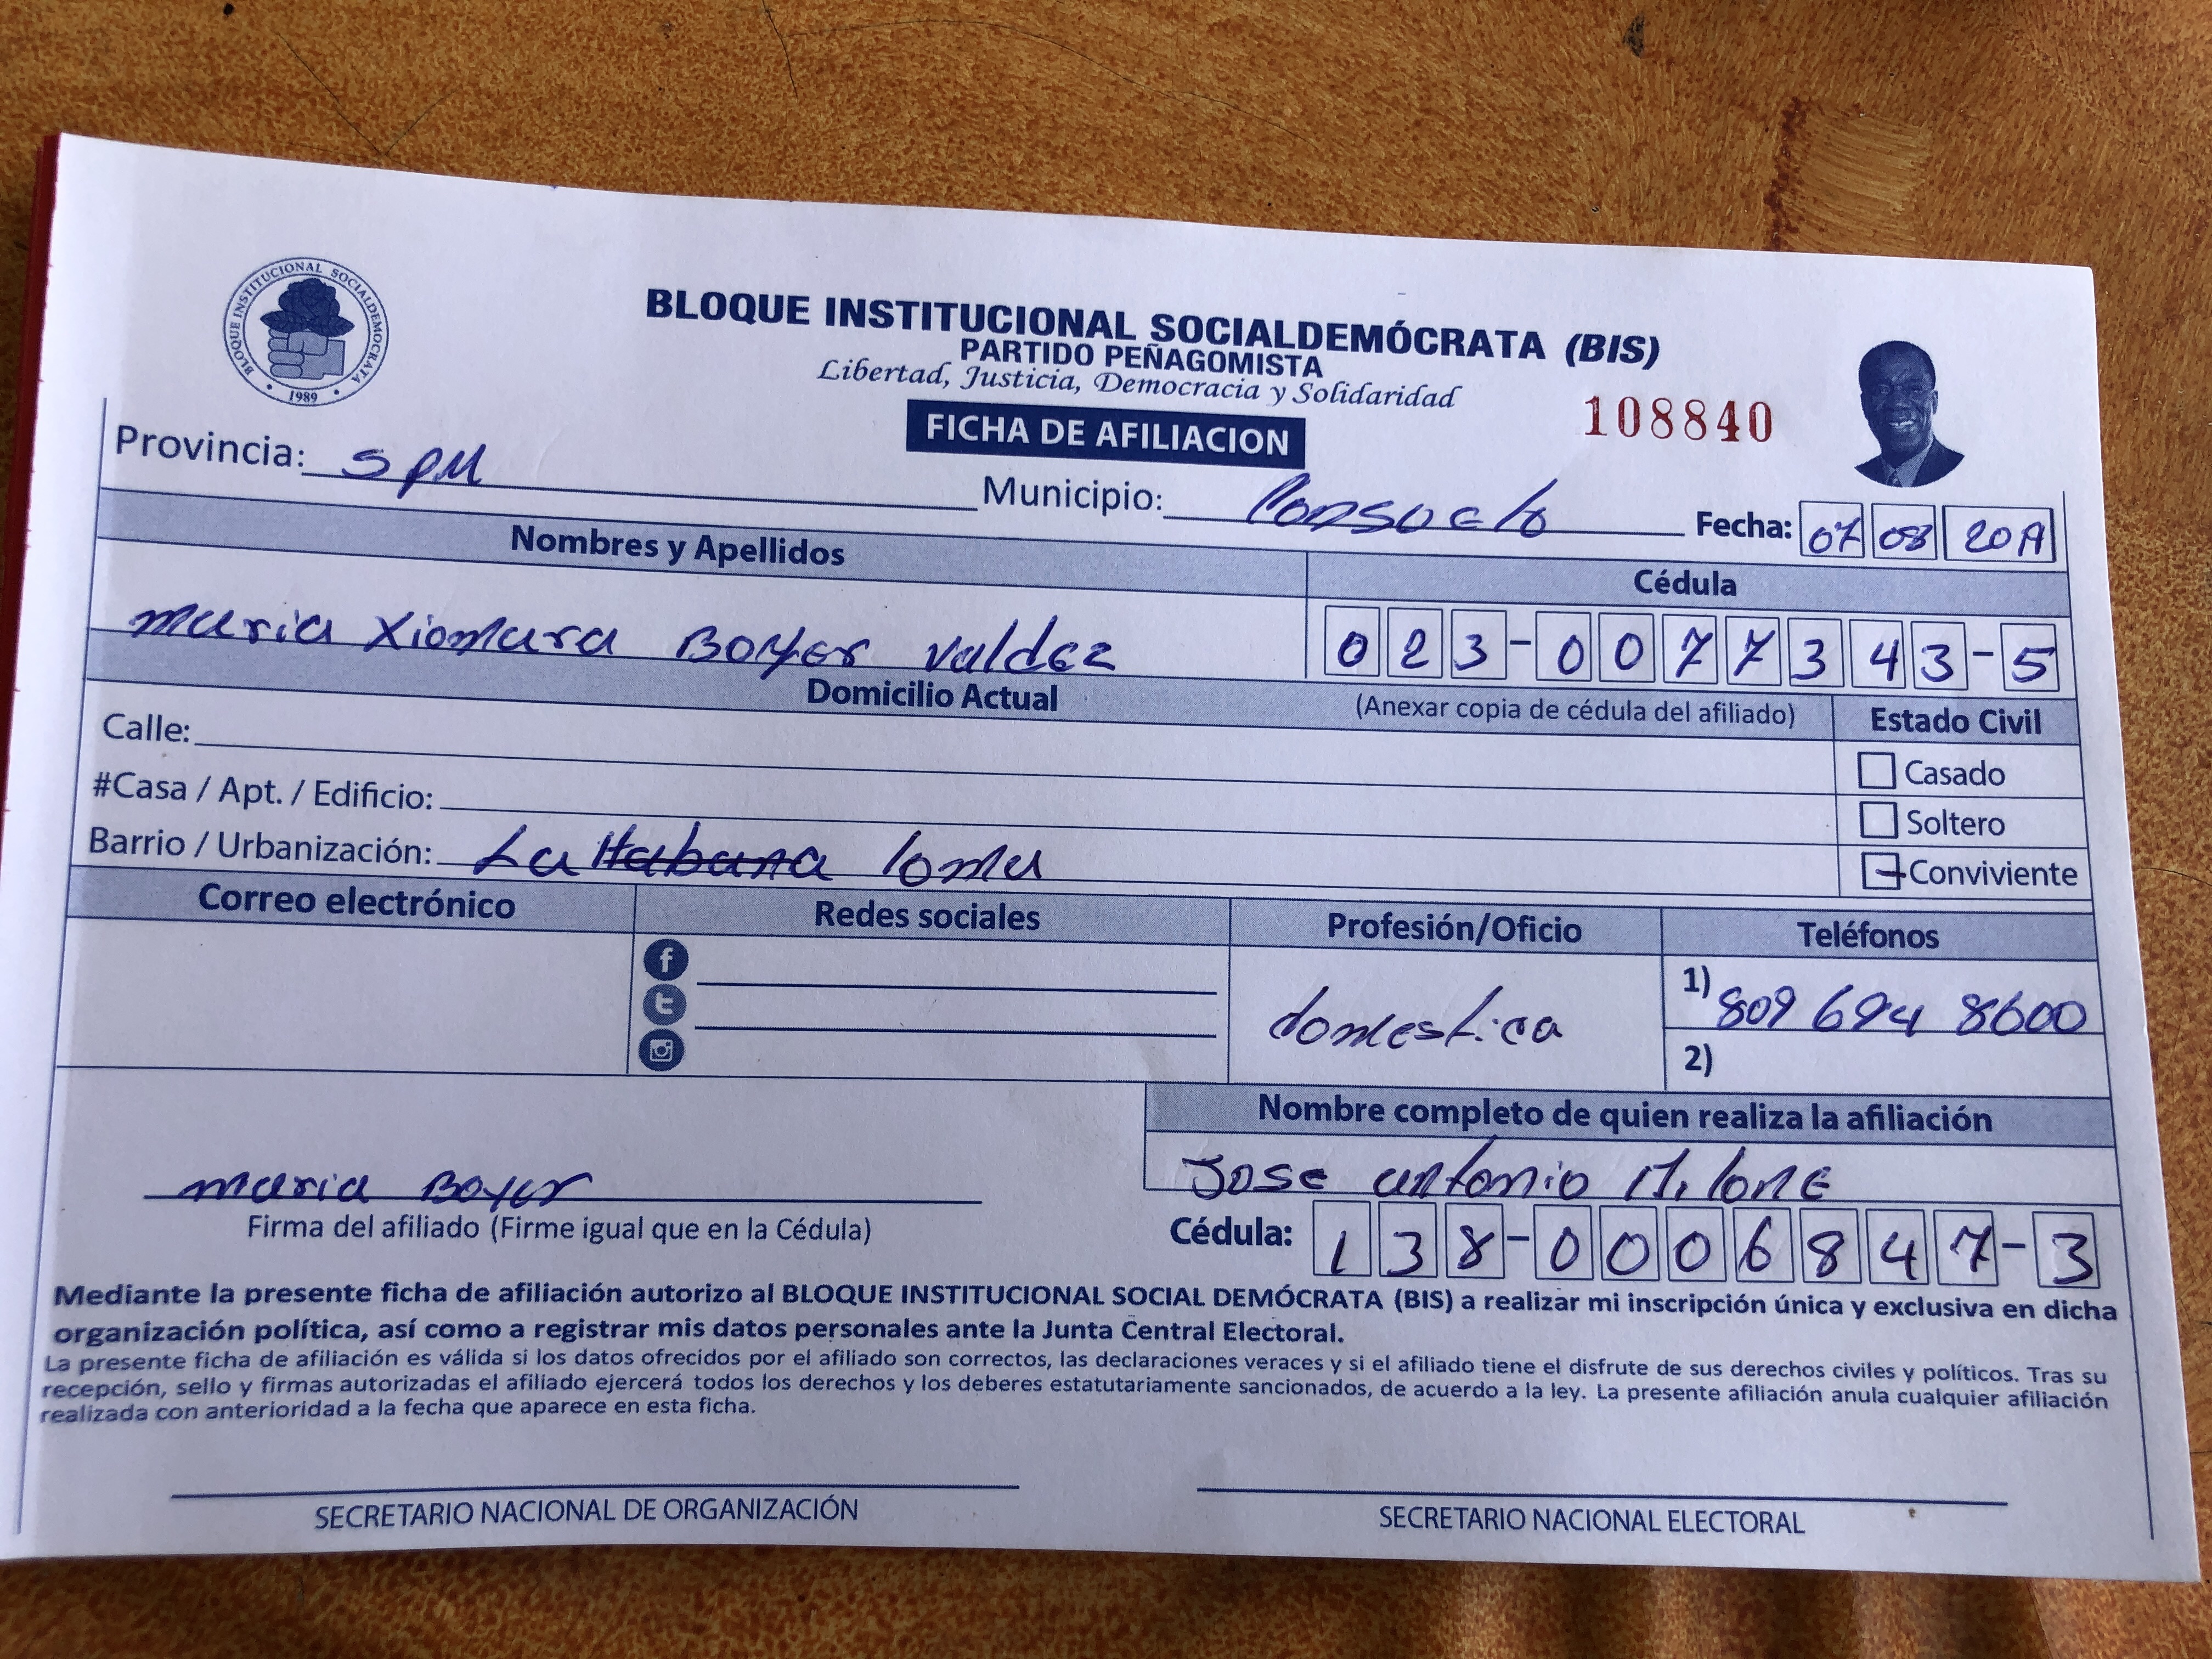 BLOQUE INSTITUCIONAL SOCIALDEMÓCRATA
1989
BLOQUE INSTITUCIONAL SOCIALDEMÓCRATA (BIS)
PARTIDO PEÑAGOMISTA
Libertad, Justicia, Democracia y Solidaridad
108840
FICHA DE AFILIACION
Provincia: SPM
Municipio: Consuelo
Fecha: 07 08 2019
Nombres y Apellidos
Cédula
Maria Xiomara Boyer Valdez
023-0077343-5
Domicilio Actual
(Anexar copia de cédula del afiliado)
Estado Civil
Calle:
Casado
#Casa / Apt. / Edificio:
Soltero
Barrio / Urbanización: La Habana loma
Conviviente
Correo electrónico
Redes sociales
Profesión/Oficio
Teléfonos
domestica
1) 809 694 8600
2)
Nombre completo de quien realiza la afiliación
Jose antonio
maria Boyer
Firma del afiliado (Firme igual que en la Cédula)
Cédula: 138-0006847-3
Mediante la presente ficha de afiliación autorizo al BLOQUE INSTITUCIONAL SOCIAL DEMÓCRATA (BIS) a realizar mi inscripción única y exclusiva en dicha
organización política, así como a registrar mis datos personales ante la Junta Central Electoral.
La presente ficha de afiliación es válida si los datos ofrecidos por el afiliado son correctos, las declaraciones veraces y si el afiliado tiene el disfrute de sus derechos civiles y políticos. Tras su
recepción, sello y firmas autorizadas el afiliado ejercerá todos los derechos y los deberes estatutariamente sancionados, de acuerdo a la ley. La presente afiliación anula cualquier afiliación
realizada con anterioridad a la fecha que aparece en esta ficha.
SECRETARIO NACIONAL DE ORGANIZACIÓN
SECRETARIO NACIONAL ELECTORAL